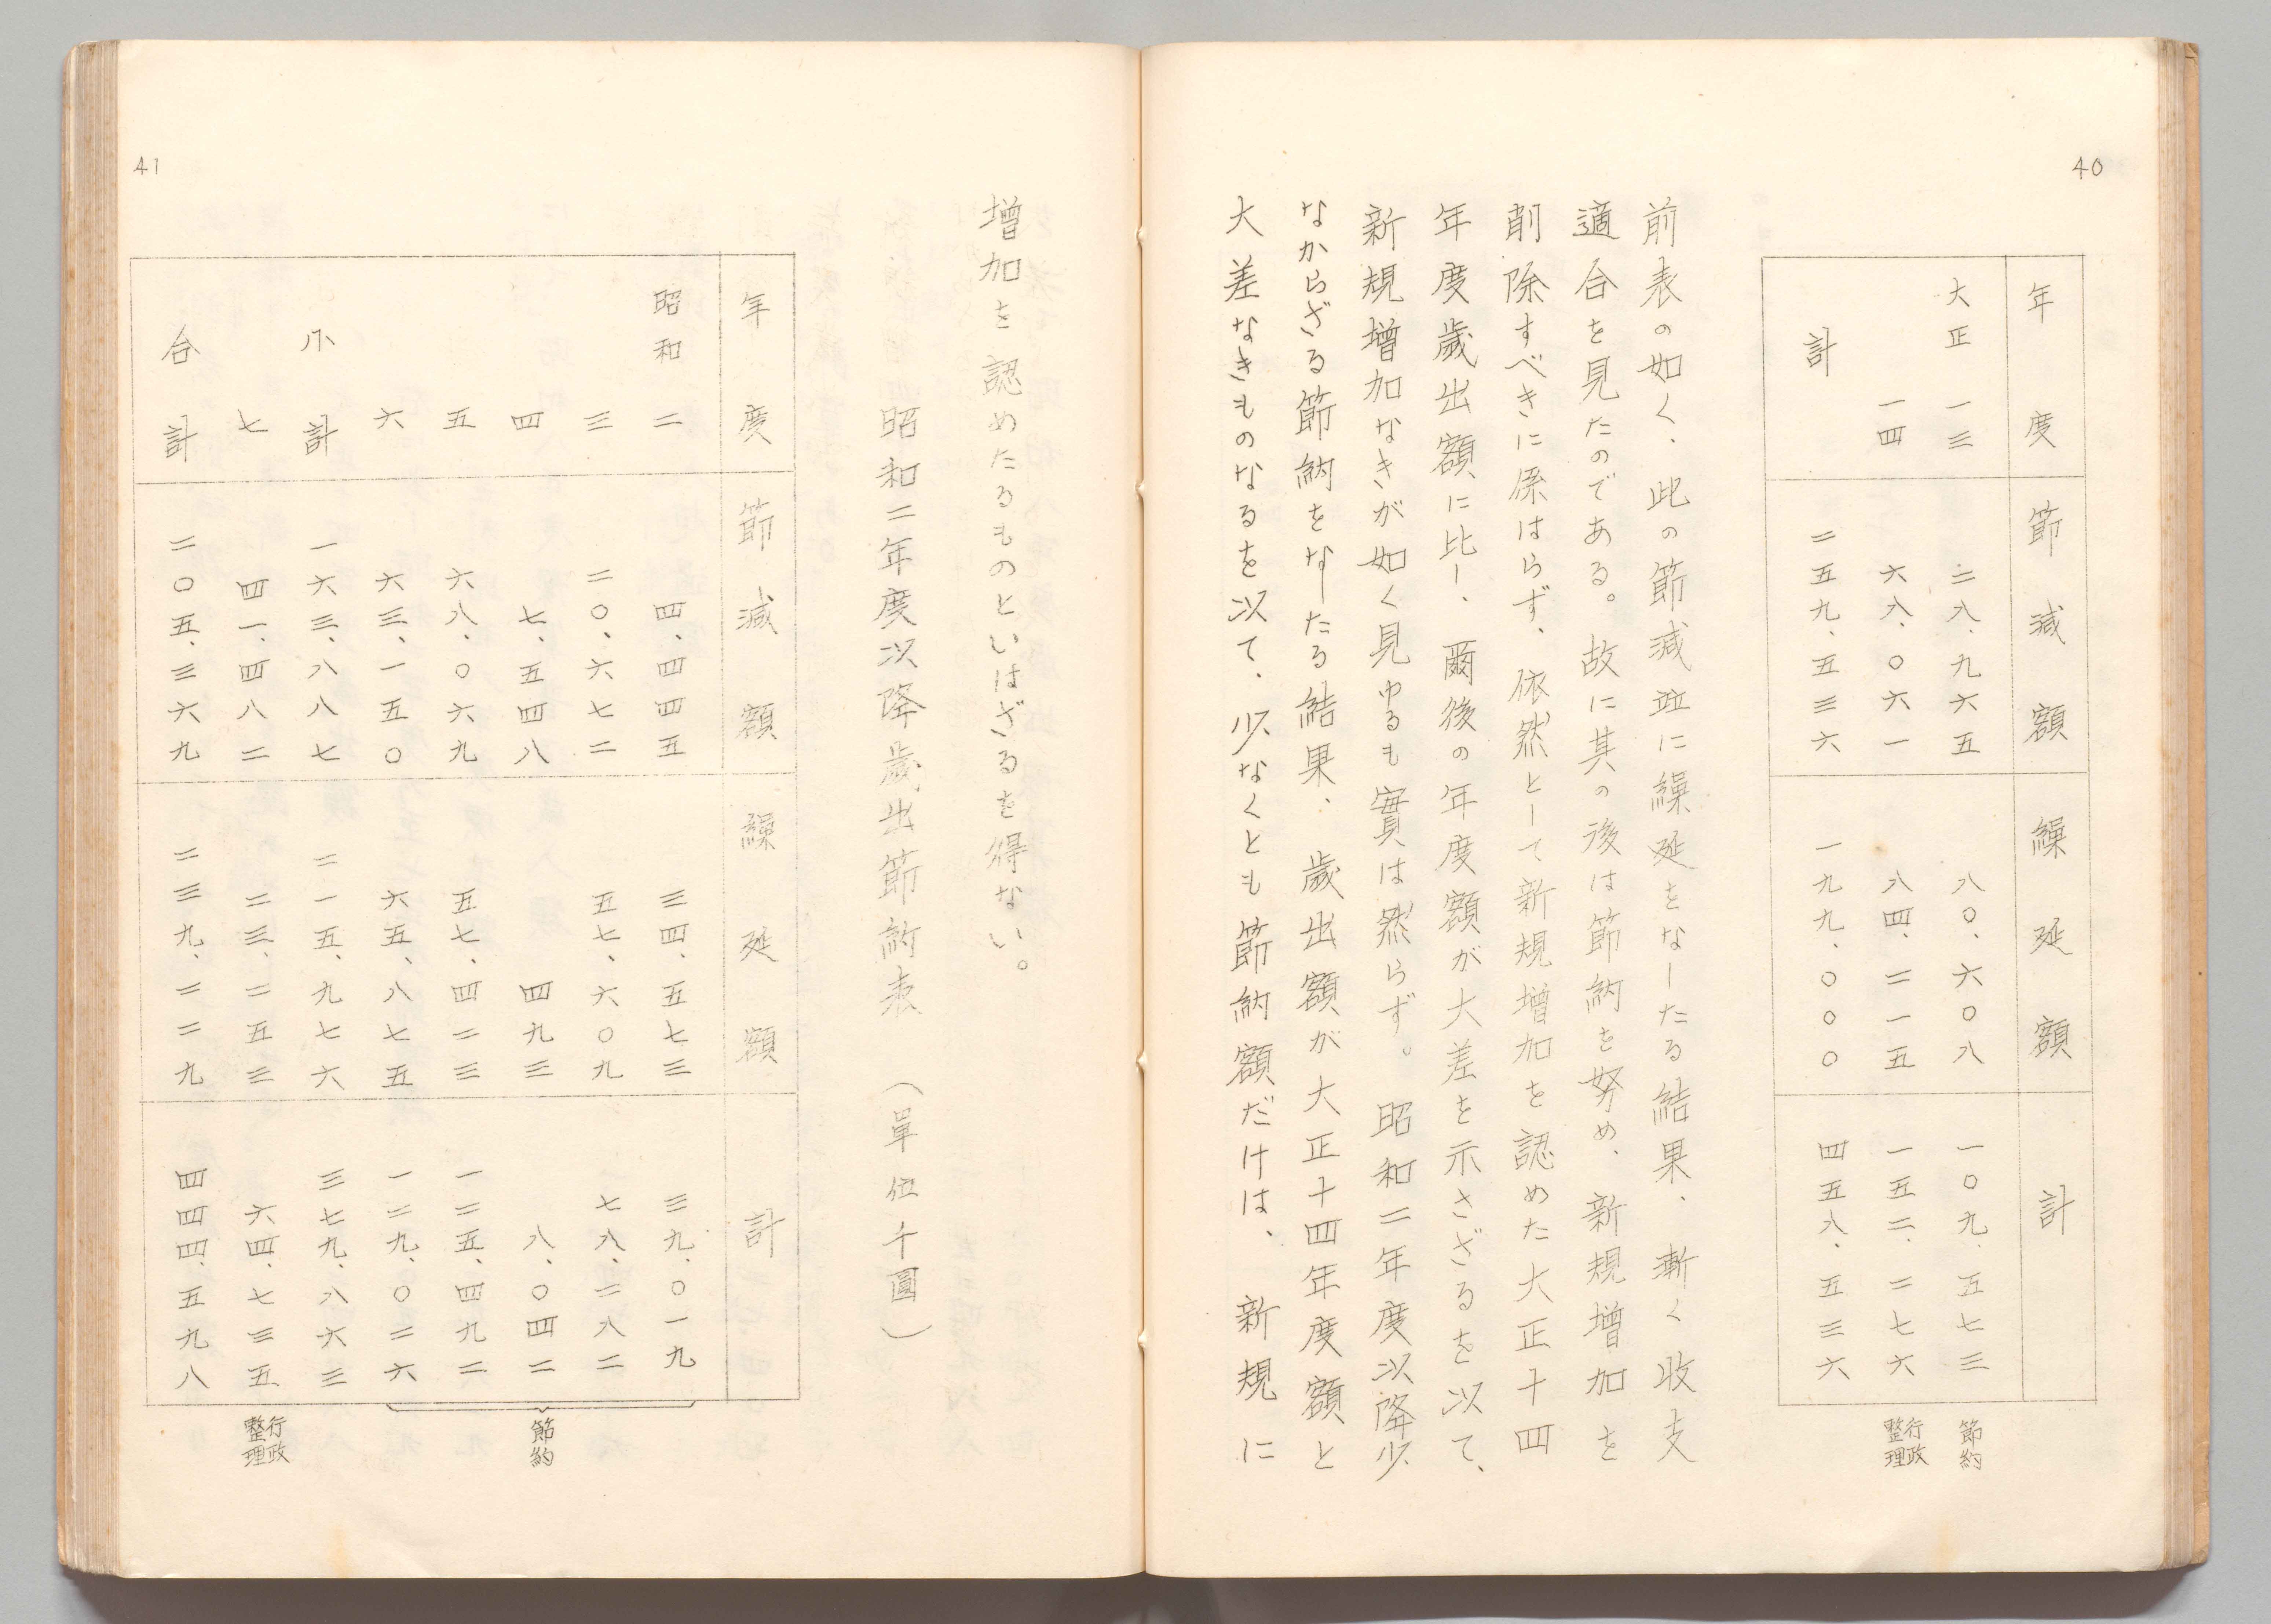 40
年度 節減額 繰延額 計
大正一三 二八、九六五 八〇、六〇八 一〇九、五七三 節約
一四 六八、〇六一 八四、二一五 一五二、二七六 行政整理
計 二五九、五三六 一九九、〇〇〇 四五八、五三六
前表の如く、此の節減並に繰延をなしたる結果、漸く收支
適合を見たのである。故に其の後は節約を努め、新規增加を
削除すべきに係はらず、依然として新規增加を認めた大正十四
年度歲出額に比し、爾後の年度額が大差を示さざるを以て、
新規增加なきが如く見ゆるも實は然らず。昭和二年度以降少
なからざる節約をなしたる結果、歲出額が大正十四年度額と
大差なきものなるを以て、少なくとも節約額だけは、新規に
41
增加を認めたるものといはざるを得ない。
昭和二年度以降歲出節約表（單位千圓）
年度 節減額 繰延額 計
昭和二 四、四四五 三四、五七三 三九、〇一九
三 二〇、六七二 五七、六〇九 七八、二八二
四 七、五四八 四九三 八、〇四二
五 六八、〇六九 五七、四二三 一二五、四九二
六 六三、一五〇 六五、八七五 一二九、〇二六
節約
小計 一六三、八八七 二一五、九七六 三七九、八六三
七 四一、四八二 二三、二五三 六四、七三五 行政整理
合計 二〇五、三六九 二三九、二二九 四四四、五九八